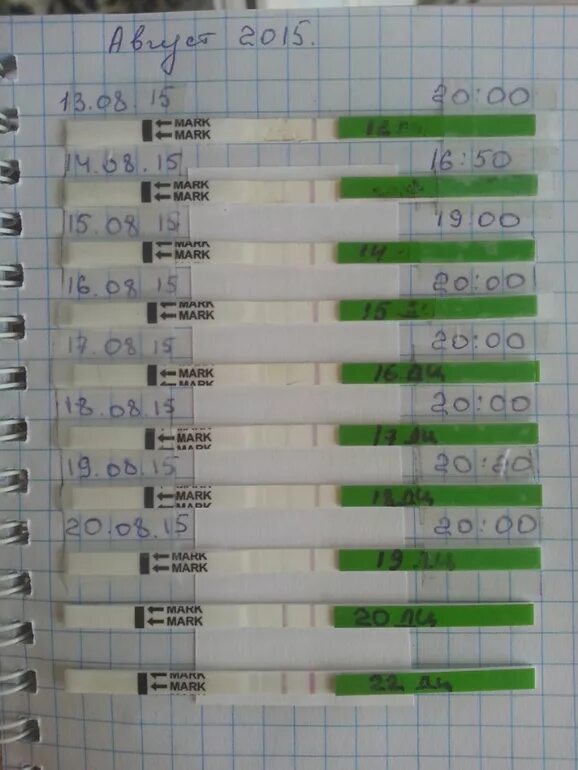 Август 2015.
13.08.15 20:00
MARK
MARK
14.08.15 16:50
MARK
MARK
15.08.15 19:00
MARK
MARK 14
16.08.15 20:00
MARK
MARK 15 ДЦ
17.08.15 20:00
MARK
MARK 16 ДЦ
18.08.15 20:00
MARK
MARK 17 ДЦ
19.08.15 20:00
MARK
MARK 18 ДЦ
20.08.15 20:00
MARK
MARK 19 ДЦ
MARK
MARK 20 ДЦ
MARK
MARK 22 ДЦ